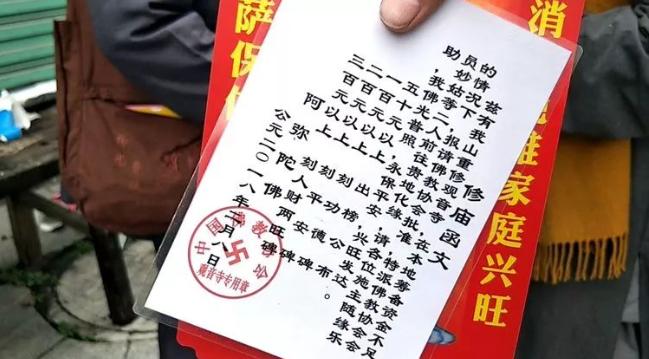 修庙函文
兹有我山重修观音寺，在本地筹备资金不足
的情况下，报请佛教协会批准，特派佛教协会
员妙姑等二人前往贵地化缘，请各位施主随缘乐
助，我佛光普照，永保平安，兴旺发达。
五十元以上 出榜公布
一百元以上 刻功德碑
二百元以上 刻平安碑
三百元以上 刻人财两旺碑
阿弥陀佛
公元二〇一八年二月八日
中国佛教协会
观音寺专用章
萨保
消
难家庭兴旺